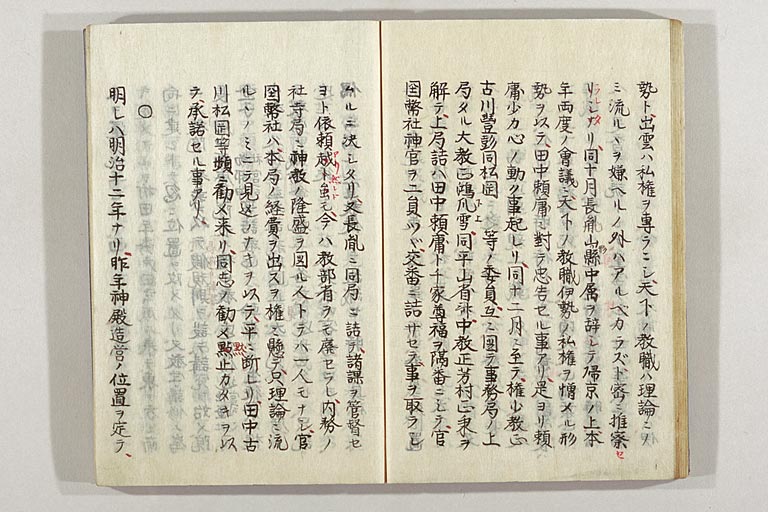 勢ト出雲ハ私権ヲ専ラニシ天下ノ教職ハ理論ニノ
ミ流ルヽヲ嫌ヘルノ外ハアルベカラズト密ニ推察セ
リシナリ同十月長胤山縣中属ヲ辞シテ帰京ノ上本
年両度ノ會議ニ天下ノ教職伊勢ノ私権ヲ憎メル形
勢ヲ以テ田中頼庸ニ對テ忠告セル事アリ是ヨリ頼
庸少カ心ノ動ク事起レリ同十二月ニ至テ権少教正
古川豊彭同松岡 等ノ委員互ニ図テ事務局ノ上
局タル大教正鴻雪爪同平山省斎中教正芳村正秉ヲ
解テ上局詰ハ田中頼庸ト千家尊福ヲ隔番ニシテ官
国幣社神官ヲ二員ツヽ交番ニ詰サセラ事ヲ取ラシ
ムルニ決シタリ又長胤ニ同局ニ詰テ諸課ヲ管督セ
ヨト依頼 ト虽モ今ハ教部省ヲモ廃セラレ内務ノ
社寺局ニ神教ノ隆盛ヲ図ル人トテハ一人モナシ官
国幣社ハ本局ノ経費ヲ出スヲ権ニ懸テ只理論ニ流
ルヽノミニテ見込ナキヲ以テ平ニ断レリ田中古
川松岡等頻ニ勧メ来リ同志ノ勧メ黙止カタキヲ以
テ承諾セル事アリ
○
明レハ明治十二年ナリ昨年神殿造営ノ位置ヲ定テ